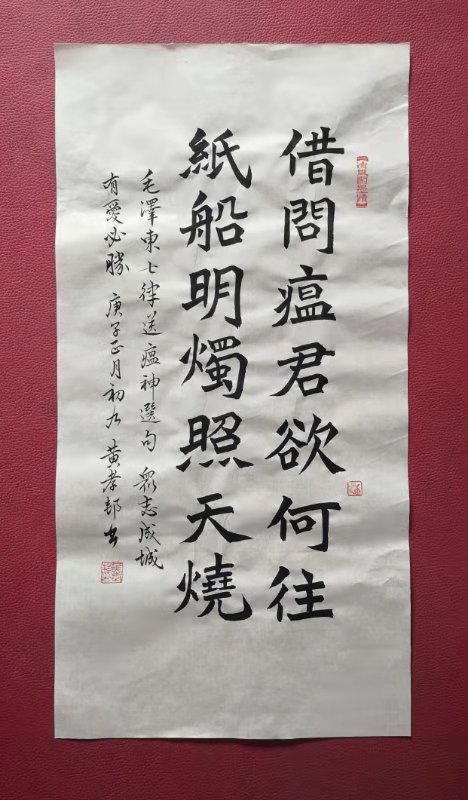 借問瘟君欲何往
紙船明燭照天燒
毛澤東七律送瘟神選句 眾志成城
有愛必勝 庚子正月初九 黃孝邨書